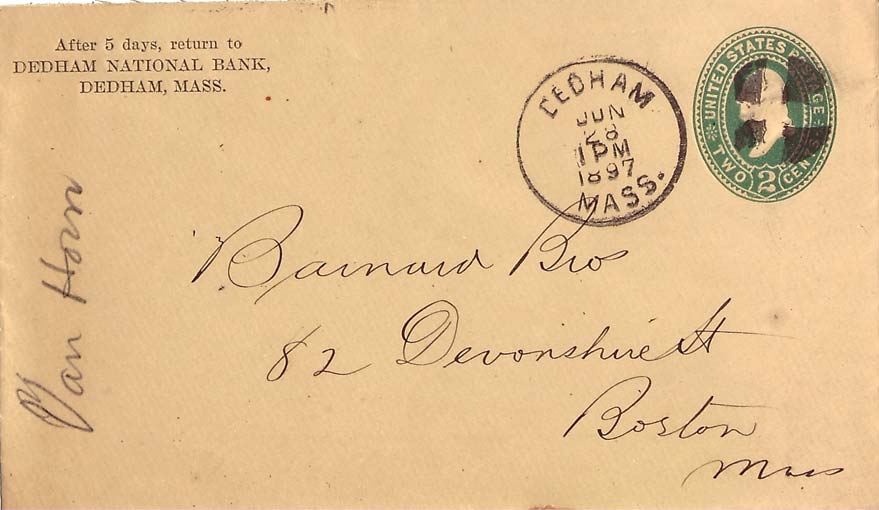 After 5 days, return to
DEDHAM NATIONAL BANK,
DEDHAM, MASS.
DEDHAM
JUN
28
1 PM
1897
MASS.
UNITED STATES POSTAGE
TWO 2 CENTS
Van Horn
Barnard Bros
82 Devonshire St
Boston
Mass